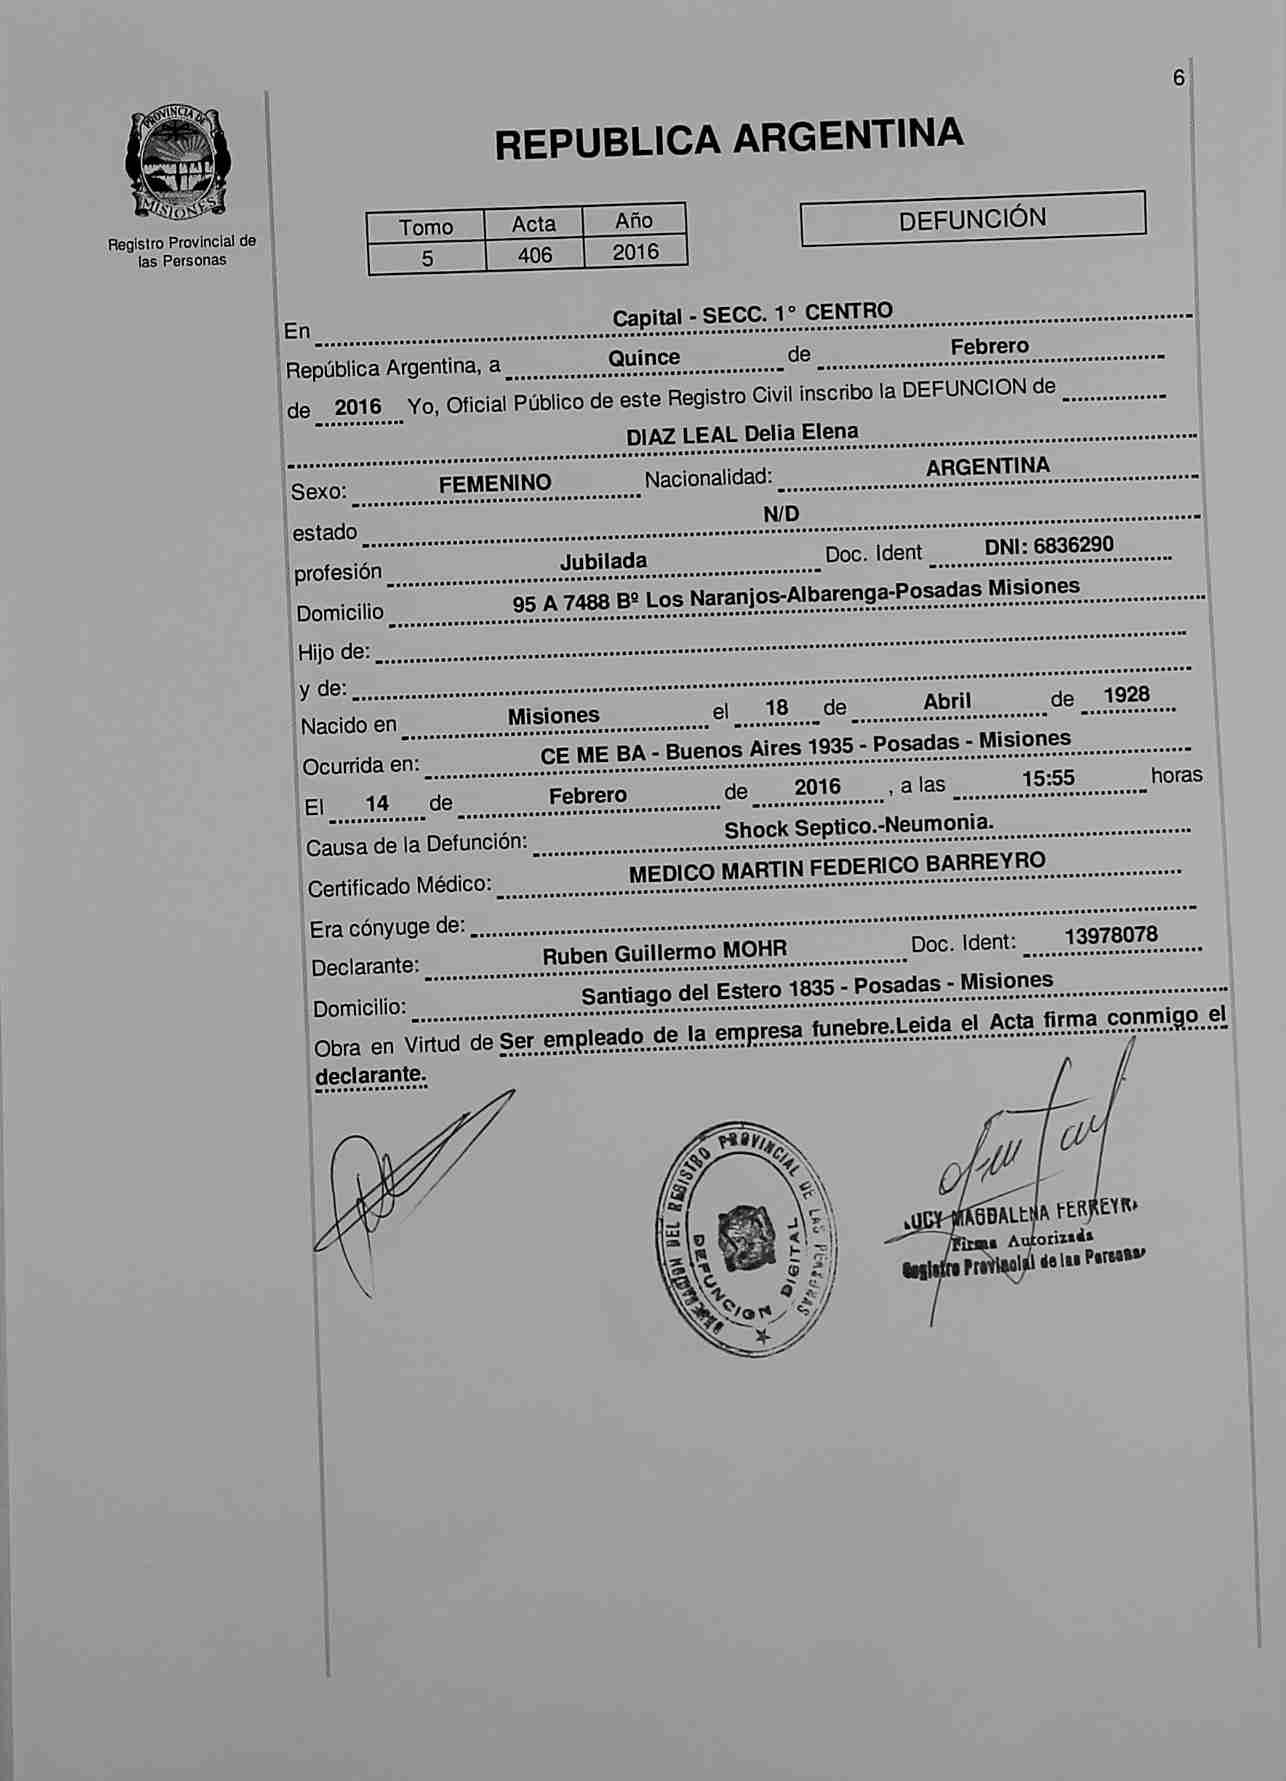 6
PROVINCIA DE
MISIONES
Registro Provincial de
las Personas
REPUBLICA ARGENTINA
Tomo Acta Año
5 406 2016
DEFUNCIÓN
En Capital - SECC. 1° CENTRO
República Argentina, a Quince de Febrero
de 2016 Yo, Oficial Público de este Registro Civil inscribo la DEFUNCION de
DIAZ LEAL Delia Elena
Sexo: FEMENINO Nacionalidad: ARGENTINA
estado N/D
profesión Jubilada Doc. Ident DNI: 6836290
Domicilio 95 A 7488 Bº Los Naranjos-Albarenga-Posadas Misiones
Hijo de:
y de:
Nacido en Misiones el 18 de Abril de 1928
Ocurrida en: CE ME BA - Buenos Aires 1935 - Posadas - Misiones
El 14 de Febrero de 2016 , a las 15:55 horas
Causa de la Defunción: Shock Septico.-Neumonia.
Certificado Médico: MEDICO MARTIN FEDERICO BARREYRO
Era cónyuge de:
Declarante: Ruben Guillermo MOHR Doc. Ident: 13978078
Domicilio: Santiago del Estero 1835 - Posadas - Misiones
Obra en Virtud de Ser empleado de la empresa funebre.Leida el Acta firma conmigo el
declarante.
DEL REGISTRO PROVINCIAL DE LAS PERSONAS
DEFUNCION DIGITAL
MAGDALENA FERREYRA
Firma Autorizada
Registro Provincial de las Personas